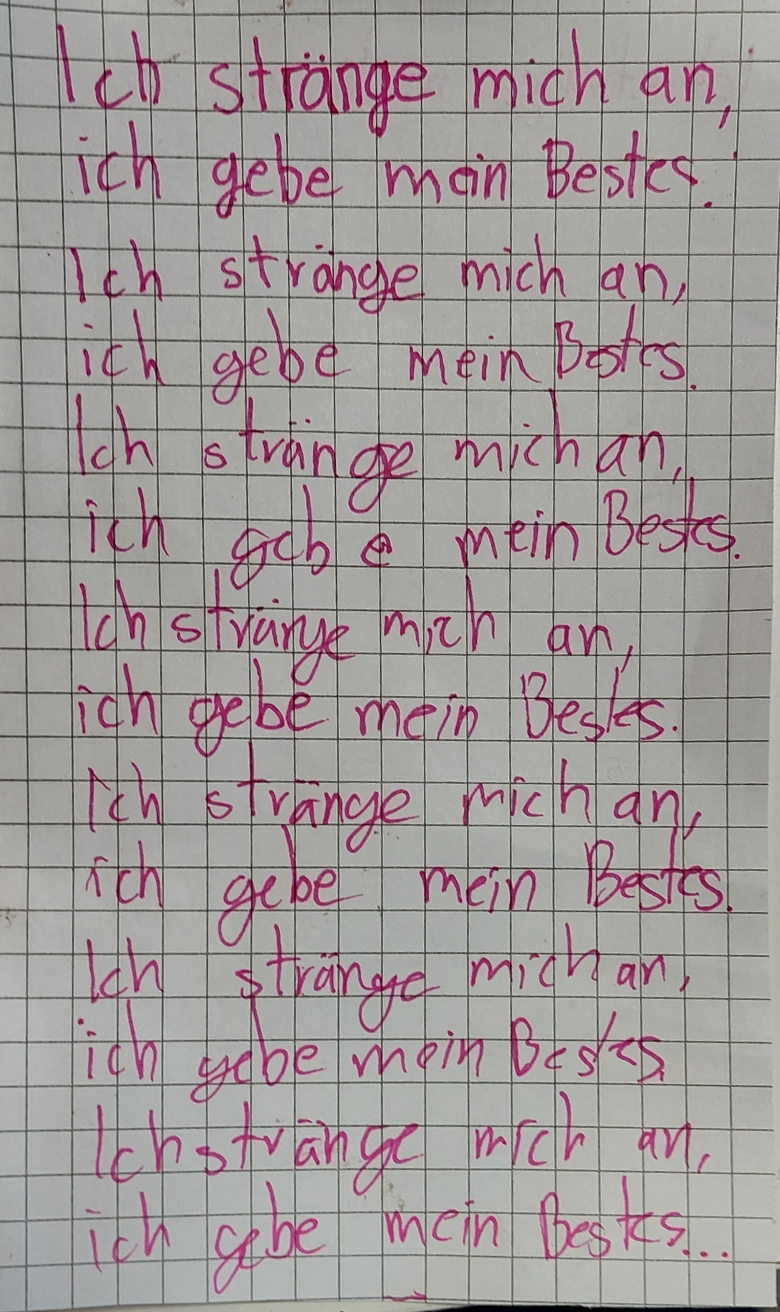 Ich stränge mich an,
ich gebe mein Bestes.
Ich stränge mich an,
ich gebe mein Bestes.
Ich stränge mich an,
ich gebe mein Bestes.
Ich stränge mich an,
ich gebe mein Bestes.
Ich stränge mich an,
ich gebe mein Bestes.
Ich stränge mich an,
ich gebe mein Bestes
Ich stränge mich an,
ich gebe mein Bestes...